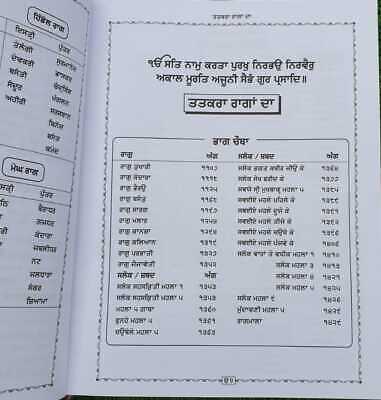 ਹਿੰਡੋਲ ਰਾਗ
ਇਸਤ੍ਰੀ ਪੁੱਤਰ
ਤੇਲੰਗੀ ਸੁਰਮਾਨੰਦ
ਦੇਵਕਰੀ ਭਾਸਕਰ
ਬਸੰਤੀ ਚੰਦ੍ਰਬਿੰਬ
ਸੰਦੂਰ ਮੰਗਲਨ
ਅਹੀਰੀ ਸਰਸਬਾਨ
ਬਿਨੋਦ
ਬਸੰਤ
ਕਮੋਦ
ਮੇਘ ਰਾਗ
ਇਸਤ੍ਰੀ ਪੁੱਤਰ
ਬੈਰਾਧਰ
ਗਜਧਰ
ਕੇਦਾਰਾ
ਜਬਲੀਧਰ
ਨਟ
ਜਲਧਾਰਾ
ਸੰਕਰ
ਸ਼ਿਆਮਾ
ਤਤਕਰਾ ਰਾਗਾਂ ਦਾ
ੴ ਸਤਿ ਨਾਮੁ ਕਰਤਾ ਪੁਰਖੁ ਨਿਰਭਉ ਨਿਰਵੈਰੁ
ਅਕਾਲ ਮੂਰਤਿ ਅਜੂਨੀ ਸੈਭੰ ਗੁਰ ਪ੍ਰਸਾਦਿ॥
ਤਤਕਰਾ ਰਾਗਾਂ ਦਾ
ਭਾਗ ਚੌਥਾ
ਰਾਗੁ ਅੰਗ ਸਲੋਕ / ਸ਼ਬਦ ਅੰਗ
ਰਾਗੁ ਤੁਖਾਰੀ ੧੧੦੭ ਸਲੋਕ ਭਗਤ ਕਬੀਰ ਜੀਉ ਕੇ ੧੩੬੪
ਰਾਗੁ ਕੇਦਾਰਾ ੧੧੧੮ ਸਲੋਕ ਸੇਖ ਫਰੀਦ ਕੇ ੧੩੭੭
ਰਾਗੁ ਭੈਰਉ ੧੧੨੫ ਸਵਯੇ ਸ੍ਰੀ ਮੁਖਬਾਕ੍ਯ ਮਹਲਾ ੫ ੧੩੮੫
ਰਾਗੁ ਬਸੰਤੁ ੧੧੬੮ ਸਵਈਏ ਮਹਲੇ ਪਹਿਲੇ ਕੇ ੧੩੮੯
ਰਾਗੁ ਸਾਰਗ ੧੧੯੭ ਸਵਈਏ ਮਹਲੇ ਦੂਜੇ ਕੇ ੧੩੯੧
ਰਾਗੁ ਮਲਾਰ ੧੨੫੪ ਸਵਈਏ ਮਹਲੇ ਤੀਜੇ ਕੇ ੧੩੯੨
ਰਾਗੁ ਕਾਨੜਾ ੧੨੯੪ ਸਵਈਏ ਮਹਲੇ ਚਉਥੇ ਕੇ ੧੩੯੬
ਰਾਗੁ ਕਲਿਆਨ ੧੩੧੯ ਸਵਈਏ ਮਹਲੇ ਪੰਜਵੇਂ ਕੇ ੧੪੦੬
ਰਾਗੁ ਪਰਭਾਤੀ ੧੩੨੭ ਸਲੋਕ ਵਾਰਾਂ ਤੇ ਵਧੀਕ ਮਹਲਾ ੧ ੧੪੧੦
ਰਾਗੁ ਜੈਜਾਵੰਤੀ ੧੩੫੨ ਸਲੋਕ ਮਹਲਾ ੩ ੧੪੧੩
ਸਲੋਕ / ਸ਼ਬਦ ਅੰਗ ਸਲੋਕ ਮਹਲਾ ੪ ੧੪੨੧
ਸਲੋਕ ਸਹਸਕ੍ਰਿਤੀ ਮਹਲਾ ੧ ੧੩੫੩ ਸਲੋਕ ਮਹਲਾ ੫ ੧੪੨੪
ਸਲੋਕ ਸਹਸਕ੍ਰਿਤੀ ਮਹਲਾ ੫ ੧੩੫੩ ਸਲੋਕ ਮਹਲਾ ੯ ੧੪੨੬
ਮਹਲਾ ੫ ਗਾਥਾ ੧੩੬੦ ਮੁੰਦਾਵਣੀ ਮਹਲਾ ੫ ੧੪੨੯
ਫੁਨਹੇ ਮਹਲਾ ੫ ੧੩੬੧ ਰਾਗਮਾਲਾ ੧੪੨੯
ਚਉਬੋਲੇ ਮਹਲਾ ੫ ੧੩੬੩